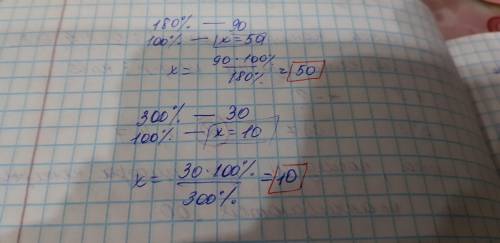 180% — 90
100% — x=50
x = 90·100% / 180% = 50
300% — 30
100% — x=10
x = 30·100% / 300% = 10